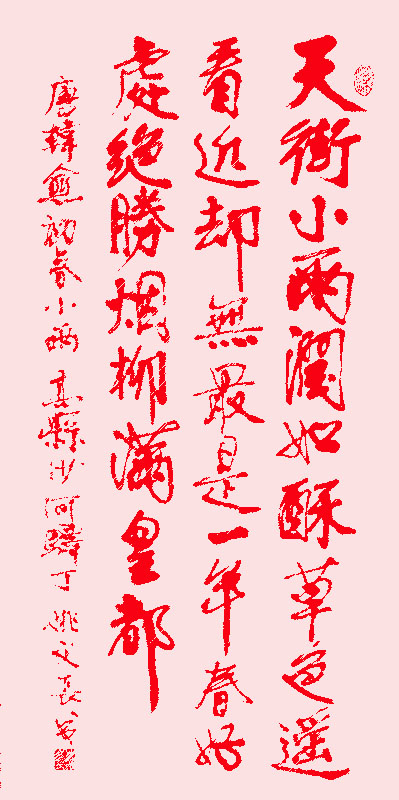 天街小雨潤如酥草色遥
看近却無最是一年春好
處絶勝烟柳滿皇都
唐韓愈初春小雨 縣沙河